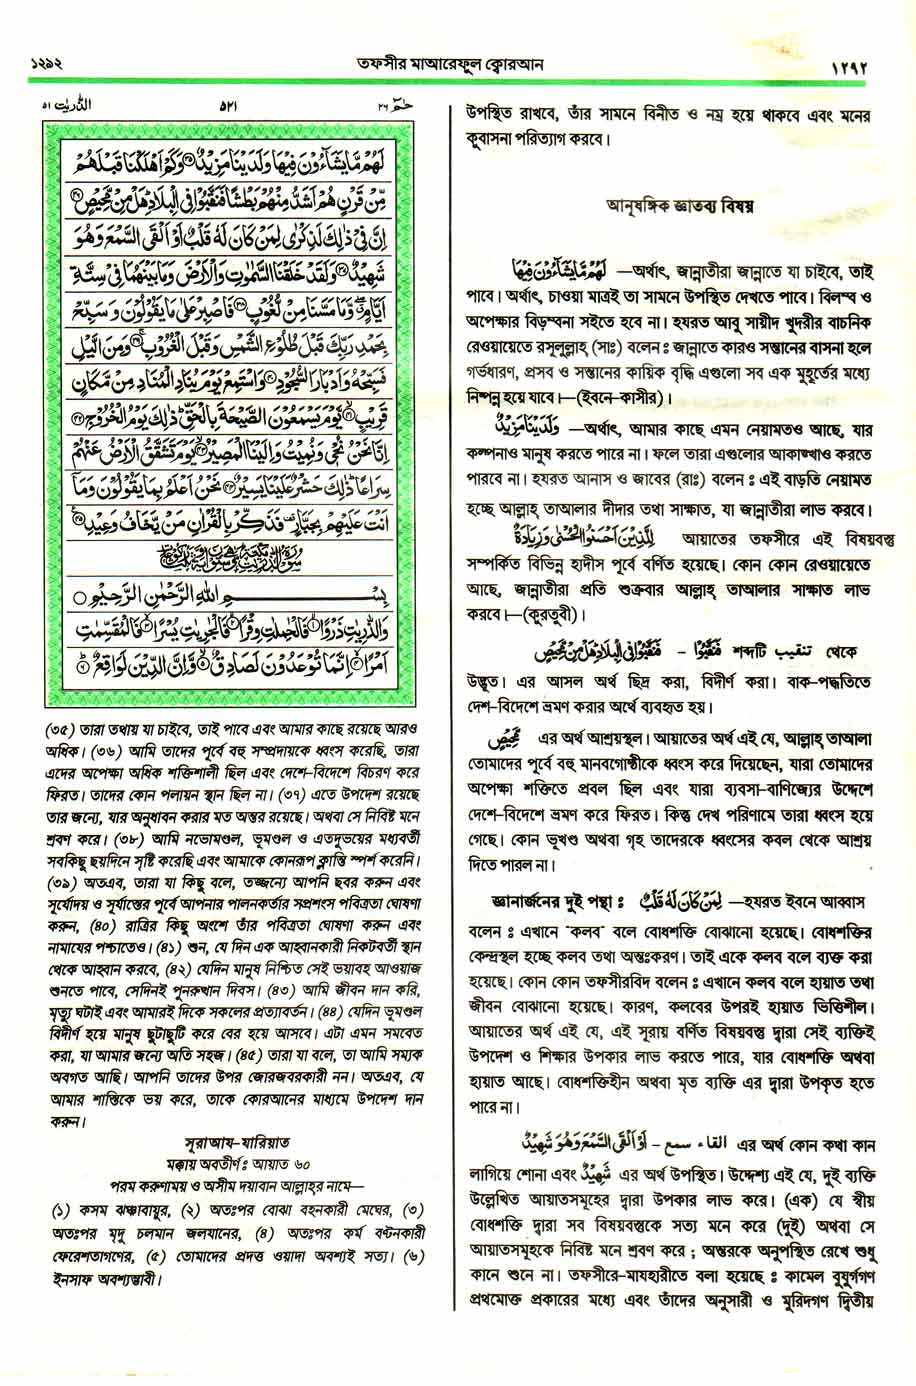 ১২৯২
তফসীর মাআরেফুল ক্বোরআন
১২৯২
الذّٰريٰت ٥١
৫২১
حٰمٓ ٢٦
لَهُمْ مَّا يَشَآءُوْنَ فِيْهَا وَلَدَيْنَا مَزِيْدٌ ﴿٣٥﴾ وَكَمْ اَهْلَكْنَا قَبْلَهُمْ
مِّنْ قَرْنٍ هُمْ اَشَدُّ مِنْهُمْ بَطْشًا فَنَقَّبُوْا فِى الْبِلَادِ هَلْ مِنْ مَّحِيْصٍ ﴿٣٦﴾
اِنَّ فِيْ ذٰلِكَ لَذِكْرٰى لِمَنْ كَانَ لَهٗ قَلْبٌ اَوْ اَلْقَى السَّمْعَ وَهُوَ
شَهِيْدٌ ﴿٣٧﴾ وَلَقَدْ خَلَقْنَا السَّمٰوٰتِ وَالْاَرْضَ وَمَا بَيْنَهُمَا فِيْ سِتَّةِ
اَيَّامٍ وَّمَا مَسَّنَا مِنْ لُّغُوْبٍ ﴿٣٨﴾ فَاصْبِرْ عَلٰى مَا يَقُوْلُوْنَ وَسَبِّحْ
بِحَمْدِ رَبِّكَ قَبْلَ طُلُوْعِ الشَّمْسِ وَقَبْلَ الْغُرُوْبِ ﴿٣٩﴾ وَمِنَ الَّيْلِ
فَسَبِّحْهُ وَاَدْبَارَ السُّجُوْدِ ﴿٤٠﴾ وَاسْتَمِعْ يَوْمَ يُنَادِ الْمُنَادِ مِنْ مَّكَانٍ
قَرِيْبٍ ﴿٤١﴾ يَّوْمَ يَسْمَعُوْنَ الصَّيْحَةَ بِالْحَقِّ ذٰلِكَ يَوْمُ الْخُرُوْجِ ﴿٤٢﴾
اِنَّا نَحْنُ نُحْيٖ وَنُمِيْتُ وَاِلَيْنَا الْمَصِيْرُ ﴿٤٣﴾ يَوْمَ تَشَقَّقُ الْاَرْضُ عَنْهُمْ
سِرَاعًا ذٰلِكَ حَشْرٌ عَلَيْنَا يَسِيْرٌ ﴿٤٤﴾ نَحْنُ اَعْلَمُ بِمَا يَقُوْلُوْنَ وَمَآ
اَنْتَ عَلَيْهِمْ بِجَبَّارٍ فَذَكِّرْ بِالْقُرْاٰنِ مَنْ يَّخَافُ وَعِيْدِ ﴿٤٥﴾
بِسْمِ اللّٰهِ الرَّحْمٰنِ الرَّحِيْمِ
وَالذّٰرِيٰتِ ذَرْوًا ﴿١﴾ فَالْحٰمِلٰتِ وِقْرًا ﴿٢﴾ فَالْجٰرِيٰتِ يُسْرًا ﴿٣﴾ فَالْمُقَسِّمٰتِ
اَمْرًا ﴿٤﴾ اِنَّمَا تُوْعَدُوْنَ لَصَادِقٌ ﴿٥﴾ وَّاِنَّ الدِّيْنَ لَوَاقِعٌ ﴿٦﴾
(৩৫) তারা তথায় যা চাইবে, তাই পাবে এবং আমার কাছে রয়েছে আরও
অধিক। (৩৬) আমি তাদের পূর্বে বহু সম্প্রদায়কে ধ্বংস করেছি, তারা
এদের অপেক্ষা অধিক শক্তিশালী ছিল এবং দেশে-বিদেশে বিচরণ করে
ফিরত। তাদের কোন পলায়ন স্থান ছিল না। (৩৭) এতে উপদেশ রয়েছে
তার জন্যে, যার অনুধাবন করার মত অন্তর রয়েছে। অথবা সে নিবিষ্ট মনে
শ্রবণ করে। (৩৮) আমি নভোমণ্ডল, ভূমণ্ডল ও এতদুভয়ের মধ্যবর্তী
সবকিছু ছয়দিনে সৃষ্টি করেছি এবং আমাকে কোনরূপ ক্লান্তি স্পর্শ করেনি।
(৩৯) অতএব, তারা যা কিছু বলে, তজ্জন্যে আপনি ছবর করুন এবং
সূর্যোদয় ও সূর্যাস্তের পূর্বে আপনার পালনকর্তার সপ্রশংস পবিত্রতা ঘোষণা
করুন, (৪০) রাত্রির কিছু অংশে তাঁর পবিত্রতা ঘোষণা করুন এবং
নামাযের পশ্চাতেও। (৪১) শুন, যে দিন এক আহ্বানকারী নিকটবর্তী স্থান
থেকে আহ্বান করবে, (৪২) যেদিন মানুষ নিশ্চিত সেই ভয়াবহ আওয়াজ
শুনতে পাবে, সেদিনই পুনরুত্থান দিবস। (৪৩) আমি জীবন দান করি,
মৃত্যু ঘটাই এবং আমারই দিকে সকলের প্রত্যাবর্তন। (৪৪) যেদিন ভূমণ্ডল
বিদীর্ণ হয়ে মানুষ ছুটাছুটি করে বের হয়ে আসবে। এটা এমন সমবেত
করা, যা আমার জন্যে অতি সহজ। (৪৫) তারা যা বলে, তা আমি সম্যক
অবগত আছি। আপনি তাদের উপর জোরজবরকারী নন। অতএব, যে
আমার শাস্তিকে ভয় করে, তাকে কোরআনের মাধ্যমে উপদেশ দান
করুন।
সূরা আয-যারিয়াত
মক্কায় অবতীর্ণ: আয়াত ৬০
পরম করুণাময় ও অসীম দয়াবান আল্লাহর নামে—
(১) কসম ঝঞ্ঝাবায়ুর, (২) অতঃপর বোঝা বহনকারী মেঘের, (৩)
অতঃপর মৃদু চলমান জলযানের, (৪) অতঃপর কর্ম বণ্টনকারী
ফেরেশতাগণের, (৫) তোমাদের প্রদত্ত ওয়াদা অবশ্যই সত্য। (৬)
ইনসাফ অবশ্যম্ভাবী।
উপস্থিত রাখবে, তাঁর সামনে বিনীত ও নম্র হয়ে থাকবে এবং মনের
কুবাসনা পরিত্যাগ করবে।
আনুষঙ্গিক জ্ঞাতব্য বিষয়
لَهُمْ مَّا يَشَآءُوْنَ فِيْهَا —অর্থাৎ, জান্নাতীরা জান্নাতে যা চাইবে, তাই
পাবে। অর্থাৎ, চাওয়া মাত্রই তা সামনে উপস্থিত দেখতে পাবে। বিলম্ব ও
অপেক্ষার বিড়ম্বনা সইতে হবে না। হযরত আবু সায়ীদ খুদরীর বাচনিক
রেওয়ায়েতে রসূলুল্লাহ্ (সাঃ) বলেন : জান্নাতে কারও সন্তানের বাসনা হলে
গর্ভধারণ, প্রসব ও সন্তানের কায়িক বৃদ্ধি এগুলো সব এক মুহূর্তের মধ্যে
নিষ্পন্ন হয়ে যাবে।—(ইবনে-কাসীর)।
وَلَدَيْنَا مَزِيْدٌ —অর্থাৎ, আমার কাছে এমন নেয়ামতও আছে, যার
কল্পনাও মানুষ করতে পারে না। ফলে তারা এগুলোর আকাঙ্খাও করতে
পারবে না। হযরত আনাস ও জাবের (রাঃ) বলেন : এই বাড়তি নেয়ামত
হচ্ছে আল্লাহ্ তাআলার দীদার তথা সাক্ষাত, যা জান্নাতীরা লাভ করবে।
لِلَّذِيْنَ اَحْسَنُوا الْحُسْنٰى وَزِيَادَةٌ আয়াতের তফসীরে এই বিষয়বস্তু
সম্পর্কিত বিভিন্ন হাদীস পূর্বে বর্ণিত হয়েছে। কোন কোন রেওয়ায়েতে
আছে, জান্নাতীরা প্রতি শুক্রবার আল্লাহ্ তাআলার সাক্ষাত লাভ
করবে।—(কুরতুবী)।
فَنَقَّبُوْا فِى الْبِلَادِ هَلْ مِنْ مَّحِيْصٍ – فَنَقَّبُوْا শব্দটি تنقيب থেকে
উদ্ভূত। এর আসল অর্থ ছিদ্র করা, বিদীর্ণ করা। বাক-পদ্ধতিতে
দেশ-বিদেশে ভ্রমণ করার অর্থে ব্যবহৃত হয়।
مَحِيْصٍ এর অর্থ আশ্রয়স্থল। আয়াতের অর্থ এই যে, আল্লাহ্ তাআলা
তোমাদের পূর্বে বহু মানবগোষ্ঠীকে ধ্বংস করে দিয়েছেন, যারা তোমাদের
অপেক্ষা শক্তিতে প্রবল ছিল এবং যারা ব্যবসা-বাণিজ্যের উদ্দেশে
দেশে-বিদেশে ভ্রমণ করে ফিরত। কিন্তু দেখ পরিণামে তারা ধ্বংস হয়ে
গেছে। কোন ভূখণ্ড অথবা গৃহ তাদেরকে ধ্বংসের কবল থেকে আশ্রয়
দিতে পারল না।
জ্ঞানার্জনের দুই পন্থা : لِمَنْ كَانَ لَهٗ قَلْبٌ —হযরত ইবনে আব্বাস
বলেন : এখানে 'কলব' বলে বোধশক্তি বোঝানো হয়েছে। বোধশক্তির
কেন্দ্রস্থল হচ্ছে কলব তথা অন্তঃকরণ। তাই একে কলব বলে ব্যক্ত করা
হয়েছে। কোন কোন তফসীরবিদ বলেন : এখানে কলব বলে হায়াত তথা
জীবন বোঝানো হয়েছে। কারণ, কলবের উপরই হায়াত ভিত্তিশীল।
আয়াতের অর্থ এই যে, এই সূরায় বর্ণিত বিষয়বস্তু দ্বারা সেই ব্যক্তিই
উপদেশ ও শিক্ষার উপকার লাভ করতে পারে, যার বোধশক্তি অথবা
হায়াত আছে। বোধশক্তিহীন অথবা মৃত ব্যক্তি এর দ্বারা উপকৃত হতে
পারে না।
اَوْ اَلْقَى السَّمْعَ وَهُوَ شَهِيْدٌ – القاء سمع এর অর্থ কোন কথা কান
লাগিয়ে শোনা এবং شَهِيْدٌ এর অর্থ উপস্থিত। উদ্দেশ্য এই যে, দুই ব্যক্তি
উল্লেখিত আয়াতসমূহের দ্বারা উপকার লাভ করে। (এক) যে স্বীয়
বোধশক্তি দ্বারা সব বিষয়বস্তুকে সত্য মনে করে (দুই) অথবা সে
আয়াতসমূহকে নিবিষ্ট মনে শ্রবণ করে ; অন্তরকে অনুপস্থিত রেখে শুধু
কানে শুনে না। তফসীরে-মাযহারীতে বলা হয়েছে : কামেল বুযুর্গগণ
প্রথমোক্ত প্রকারের মধ্যে এবং তাঁদের অনুসারী ও মুরিদগণ দ্বিতীয়